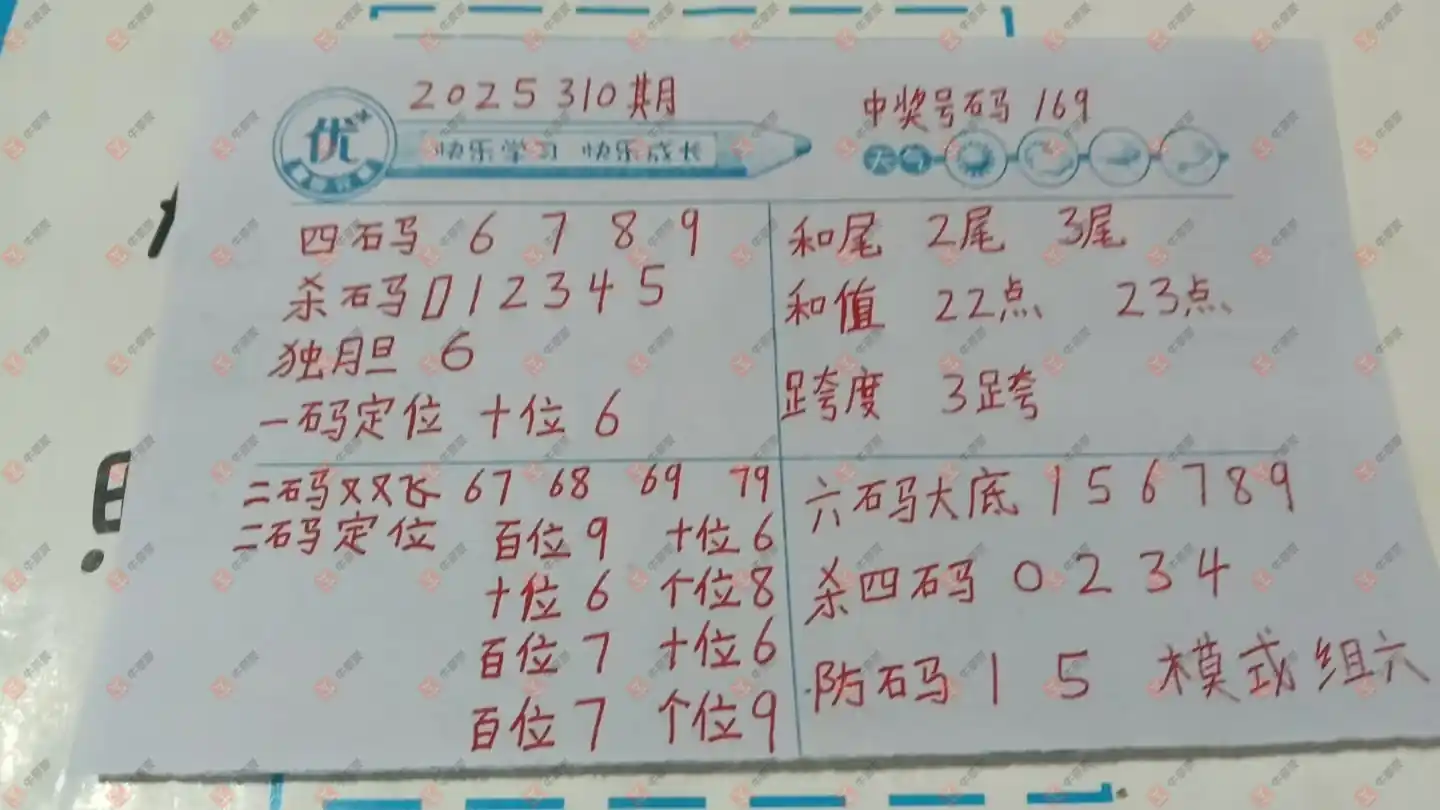 2025310期
中奖号码 169
优
快乐学习 快乐成长
天气
四码 6 7 8 9
杀码 0 1 2 3 4 5
独胆 6
一码定位 十位 6
和尾 2尾 3尾
和值 22点 23点
跨度 3跨
二码双飞 67 68 69 79
二码定位 百位9 十位6
十位6 个位8
百位7 十位6
百位7 个位9
六码大底 1 5 6 7 8 9
杀四码 0 2 3 4
防码 1 5 模式 组六
牛彩聚